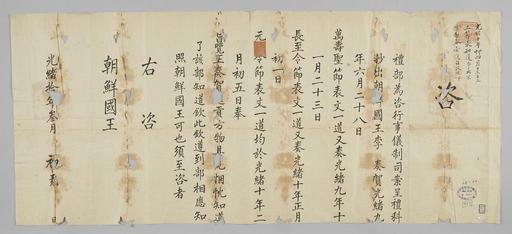 咨
禮部為咨行事儀制司案呈禮科
抄出朝鮮國王李 奏賀光緒九
年六月二十八日
萬壽聖節表文一道又奏光緒九年十
一月二十三日
長至令節表文一道又奏光緒十年正月
初一日
元 令節表文一道均於光緒十年二
月初五日奉
旨覽王奏賀 貢方物具見悃忱知道
了該部知道欽此欽遵到部相應知
照朝鮮國王可也須至咨者
右 咨
朝鮮國王
光緒拾年叁月 初 日